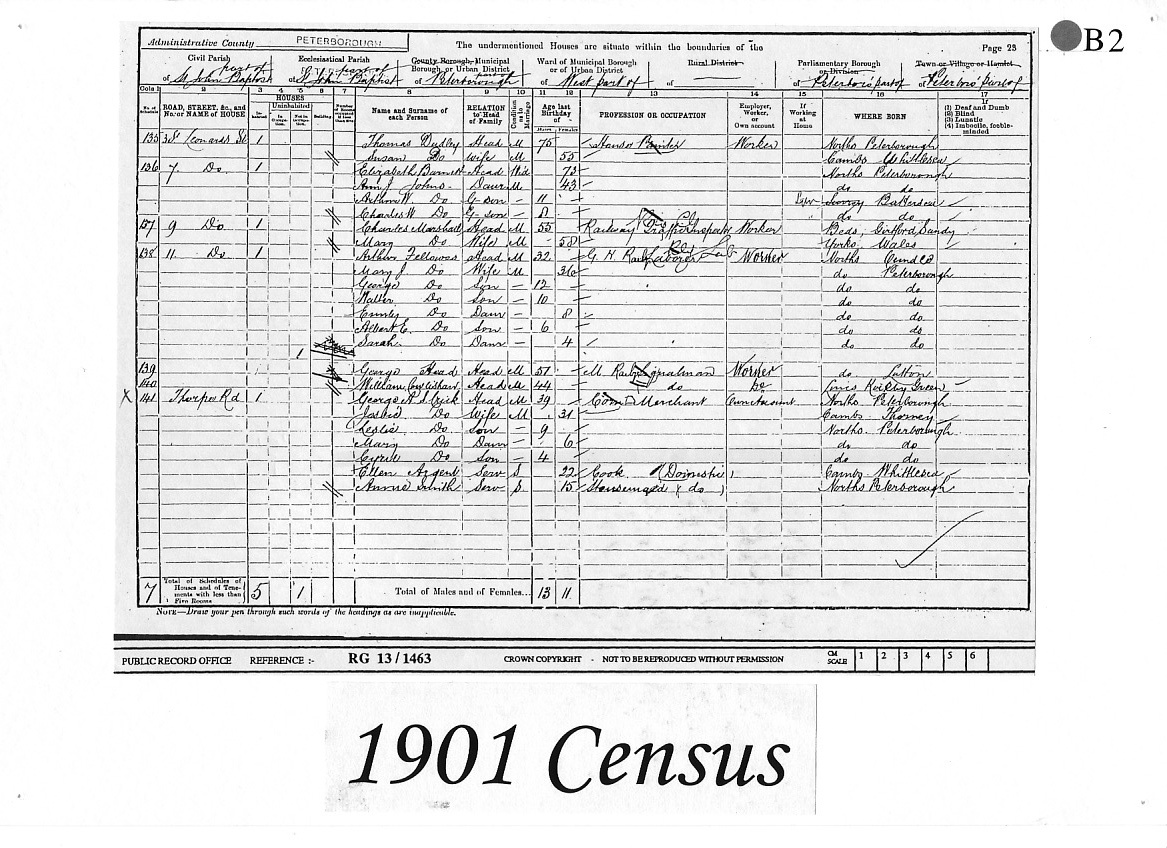 B2
Administrative County PETERBOROUGH The undermentioned Houses are situate within the boundaries of the Page 23
Civil Parish Ecclesiastical Parish County Borough, Municipal Borough, or Urban District Ward of Municipal Borough or of Urban District Rural District Parliamentary Borough or Division Town or Village or Hamlet
part of part of part of
of St John Baptist of St John Baptist of Peterborough of West part of of of Peterboro' part of of Peterboro' part of
Cols 1 2 3 4 5 6 7 8 9 10 11 12 13 14 15 16 17
No. of Schedule ROAD, STREET, &c., and No. or NAME of HOUSE HOUSES Inhabited Uninhabited In Occupation Not in Occupation Building Name and Surname of each Person RELATION to Head of Family Condition as to Marriage Age last Birthday of Males Females PROFESSION OR OCCUPATION Employer, Worker, or Own account If Working at Home WHERE BORN If (1) Deaf and Dumb (2) Blind (3) Lunatic (4) Imbecile, feeble-minded
135 3 St Leonards St 1 Thomas Dudley Head M 75 Painter Worker Norths Peterborough
Susan Do Wife M 55 Cambs Whittlesea
136 7 Do 1 Elizabeth Head Wid 73 Norths Peterborough
Ann J Johns Daur M 43 do do
Arthur W. Do G-son — 11 Surrey Battersea
Charles W Do G-son — 8 do do
137 9 Do 1 Charles Marshall Head M 55 Railway Traffic Inspector Worker Beds, Girtford Sandy
Mary Do Wife M 58 Yorks Wales
138 11 Do 1 Arthur Fellowes Head M 32 G. N. Labourer Worker Norths Oundle
Mary J Do Wife M 36 do Peterborough
George Do Son — 12 do do
Walter Do Son — 10 do do
Emily Do Daur — 8 do do
Albert E. Do Son — 6 do do
Sarah Do Daur — 4 do do
1
139 George Head Head M 51 M. Signalman Worker do Sutton
140 William Head M 44 do do
X 141 Thorpe Rd 1 George Head M 39 Corn Merchant Own Account Norths Peterborough
Do Wife M 31 Cambs Thorney
Leslie Do Son — 9 Norths Peterborough
Mary Do Daur — 6 do do
Cyril Do Son — 4 do do
Ellen Argent Serv S 22 Cook (Domestic) Cambs Whittlesea
Annie Smith Serv S 15 Housemaid (do) Norths Peterborough
7 Total of Schedules of Houses and of Tenements with less than Five Rooms 5 1 Total of Males and of Females... 13 11
NOTE—Draw your pen through such words of the headings as are inapplicable.
PUBLIC RECORD OFFICE REFERENCE :- RG 13/1463 CROWN COPYRIGHT - NOT TO BE REPRODUCED WITHOUT PERMISSION CM SCALE 1 2 3 4 5 6
1901 Census